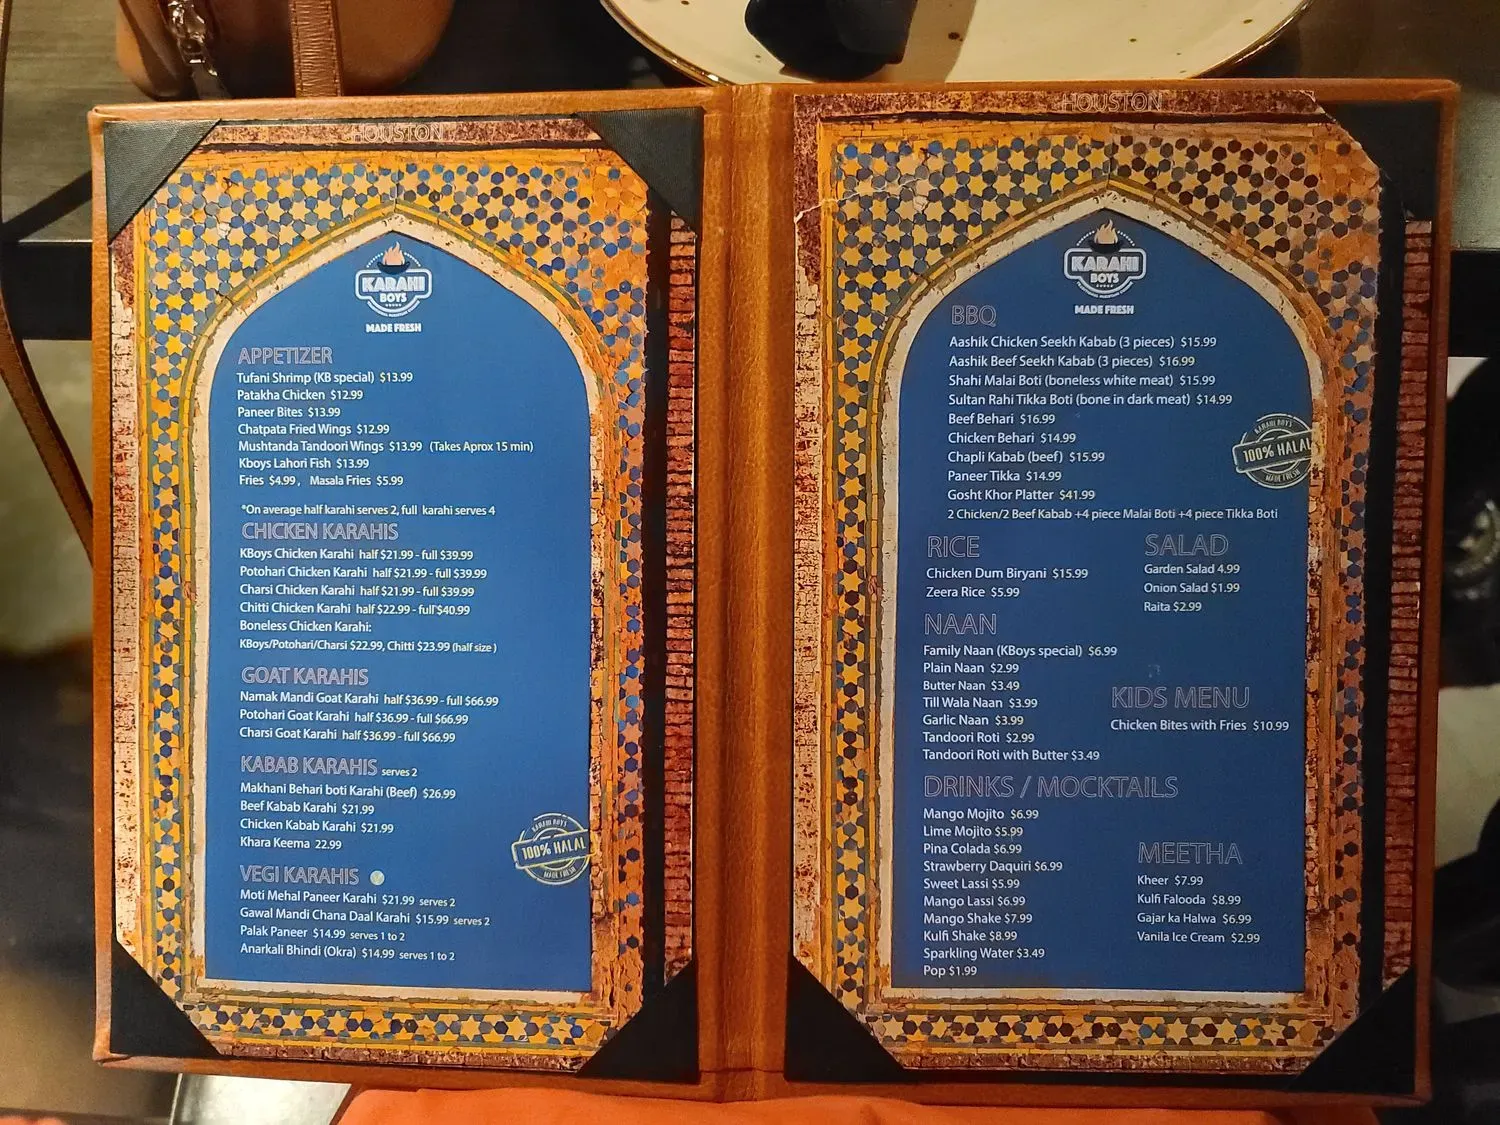 HOUSTON
KARAHI
BOYS
MADE FRESH
APPETIZER
Tufani Shrimp (KB special) $13.99
Patakha Chicken $12.99
Paneer Bites $13.99
Chatpata Fried Wings $12.99
Mushtanda Tandoori Wings $13.99 (Takes Aprox 15 min)
Kboys Lahori Fish $13.99
Fries $4.99, Masala Fries $5.99
*On average half karahi serves 2, full karahi serves 4
CHICKEN KARAHIS
KBoys Chicken Karahi half $21.99 - full $39.99
Potohari Chicken Karahi half $21.99 - full $39.99
Charsi Chicken Karahi half $21.99 - full $39.99
Chitti Chicken Karahi half $22.99 - full $40.99
Boneless Chicken Karahi:
KBoys/Potohari/Charsi $22.99, Chitti $23.99 (half size )
GOAT KARAHIS
Namak Mandi Goat Karahi half $36.99 - full $66.99
Potohari Goat Karahi half $36.99 - full $66.99
Charsi Goat Karahi half $36.99 - full $66.99
KABAB KARAHIS serves 2
Makhani Behari boti Karahi (Beef) $26.99
Beef Kabab Karahi $21.99
Chicken Kabab Karahi $21.99
Khara Keema 22.99
KARAHI BOYS
100% HALAL
MADE FRESH
VEGI KARAHIS
Moti Mehal Paneer Karahi $21.99 serves 2
Gawal Mandi Chana Daal Karahi $15.99 serves 2
Palak Paneer $14.99 serves 1 to 2
Anarkali Bhindi (Okra) $14.99 serves 1 to 2
HOUSTON
KARAHI
BOYS
MADE FRESH
BBQ
Aashik Chicken Seekh Kabab (3 pieces) $15.99
Aashik Beef Seekh Kabab (3 pieces) $16.99
Shahi Malai Boti (boneless white meat) $15.99
Sultan Rahi Tikka Boti (bone in dark meat) $14.99
Beef Behari $16.99
Chicken Behari $14.99
Chapli Kabab (beef) $15.99
Paneer Tikka $14.99
Gosht Khor Platter $41.99
2 Chicken/2 Beef Kabab +4 piece Malai Boti +4 piece Tikka Boti
KARAHI BOYS
100% HALAL
MADE FRESH
RICE
Chicken Dum Biryani $15.99
Zeera Rice $5.99
SALAD
Garden Salad 4.99
Onion Salad $1.99
Raita $2.99
NAAN
Family Naan (KBoys special) $6.99
Plain Naan $2.99
Butter Naan $3.49
Till Wala Naan $3.99
Garlic Naan $3.99
Tandoori Roti $2.99
Tandoori Roti with Butter $3.49
KIDS MENU
Chicken Bites with Fries $10.99
DRINKS / MOCKTAILS
Mango Mojito $6.99
Lime Mojito $5.99
Pina Colada $6.99
Strawberry Daquiri $6.99
Sweet Lassi $5.99
Mango Lassi $6.99
Mango Shake $7.99
Kulfi Shake $8.99
Sparkling Water $3.49
Pop $1.99
MEETHA
Kheer $7.99
Kulfi Falooda $8.99
Gajar ka Halwa $6.99
Vanila Ice Cream $2.99